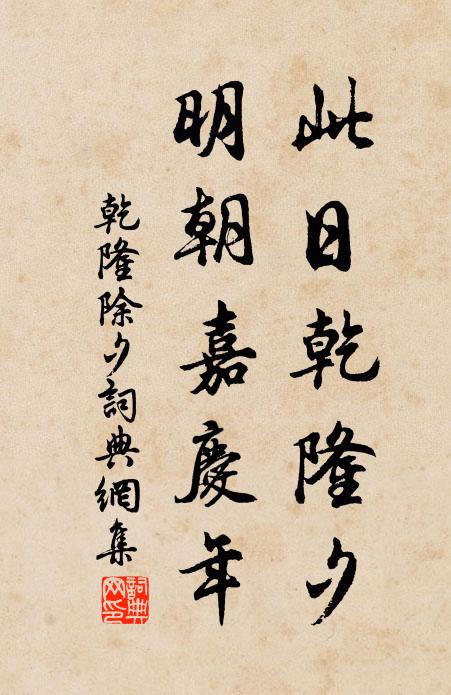 此日乾隆夕
明朝嘉慶年
乾隆除夕詞典網集
詞典網印